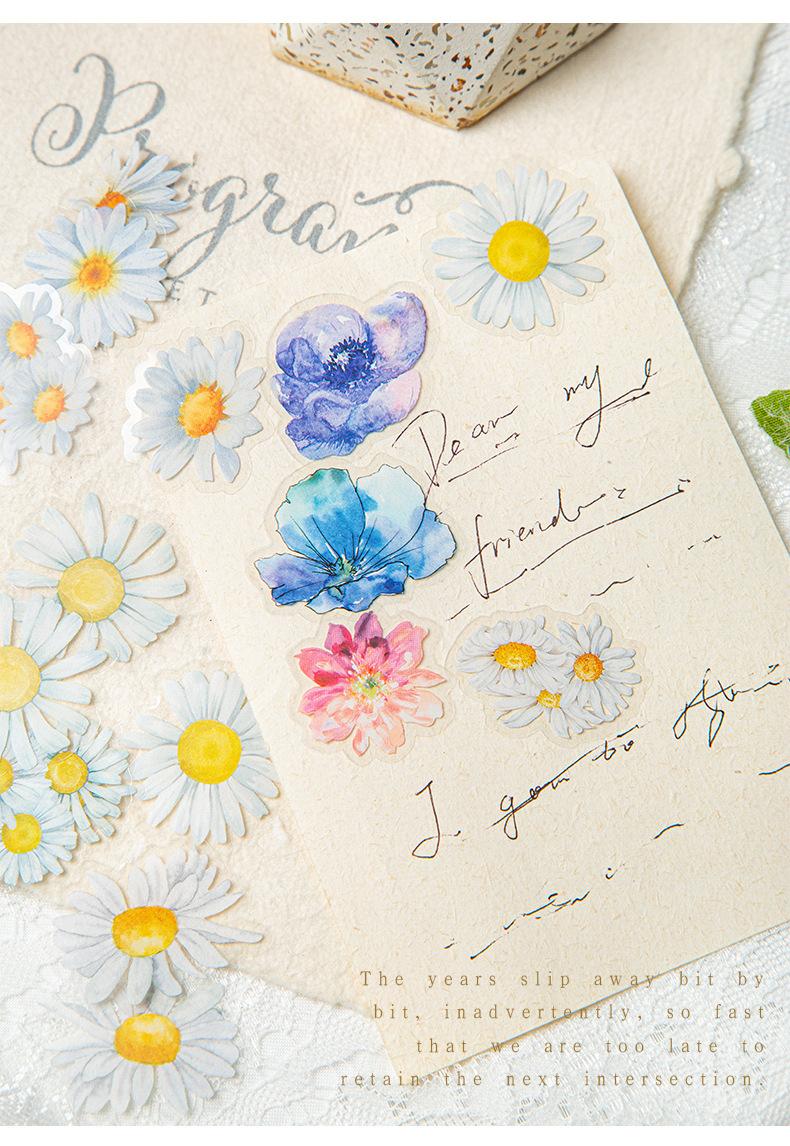 Progra
ET
Dear my
friend
I
to
The years slip away bit by
bit, inadvertently, so fast
that we are too late to
retain the next intersection.